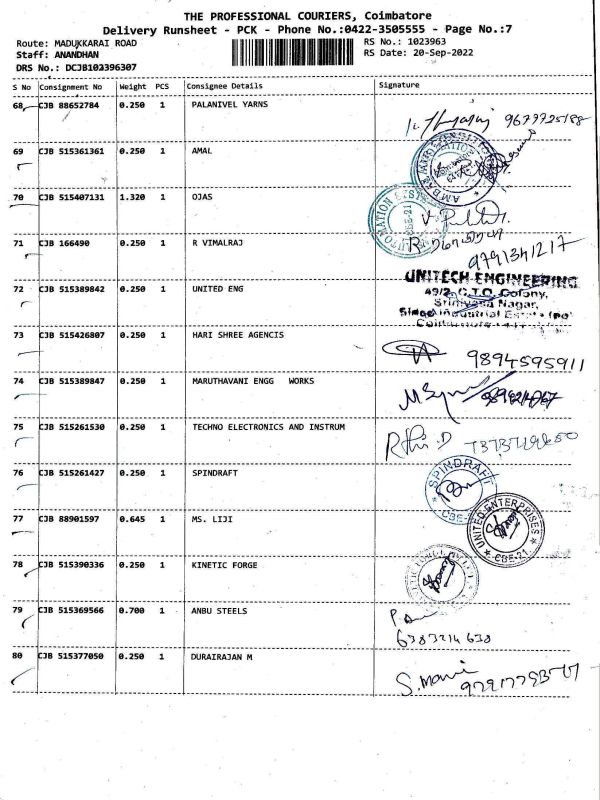 THE PROFESSIONAL COURIERS, Coimbatore
Delivery Runsheet - PCK - Phone No.:0422-3505555 - Page No.:7
Route: MADUKKARAI ROAD
RS No.: 1023963
Staff: ANANDHAN
RS Date: 20-Sep-2022
DRS No.: DCJB102396307
S No Consignment No Weight PCS Consignee Details Signature
68 CJB 88652784 0.250 1 PALANIVEL YARNS
69 CJB 515361361 0.250 1 AMAL
70 CJB 515407131 1.320 1 OJAS
71 CJB 166490 0.250 1 R VIMALRAJ
9791341217
72 CJB 515389842 0.250 1 UNITED ENG
UNITECH ENGINEERING
49/2, C.T.O. Colony,
Srinivasa Nagar,
73 CJB 515426807 0.250 1 HARI SHREE AGENCIS
9894595911
74 CJB 515389847 0.250 1 MARUTHAVANI ENGG WORKS
75 CJB 515261530 0.250 1 TECHNO ELECTRONICS AND INSTRUM
76 CJB 515261427 0.250 1 SPINDRAFT
SPINDRAFT
77 CJB 88901597 0.645 1 MS. LIJI
UNITED ENTERPRISES
CBE-21
78 CJB 515390336 0.250 1 KINETIC FORGE
79 CJB 515369566 0.700 1 ANBU STEELS
6383214638
80 CJB 515377050 0.250 1 DURAIRAJAN M
S. Mani